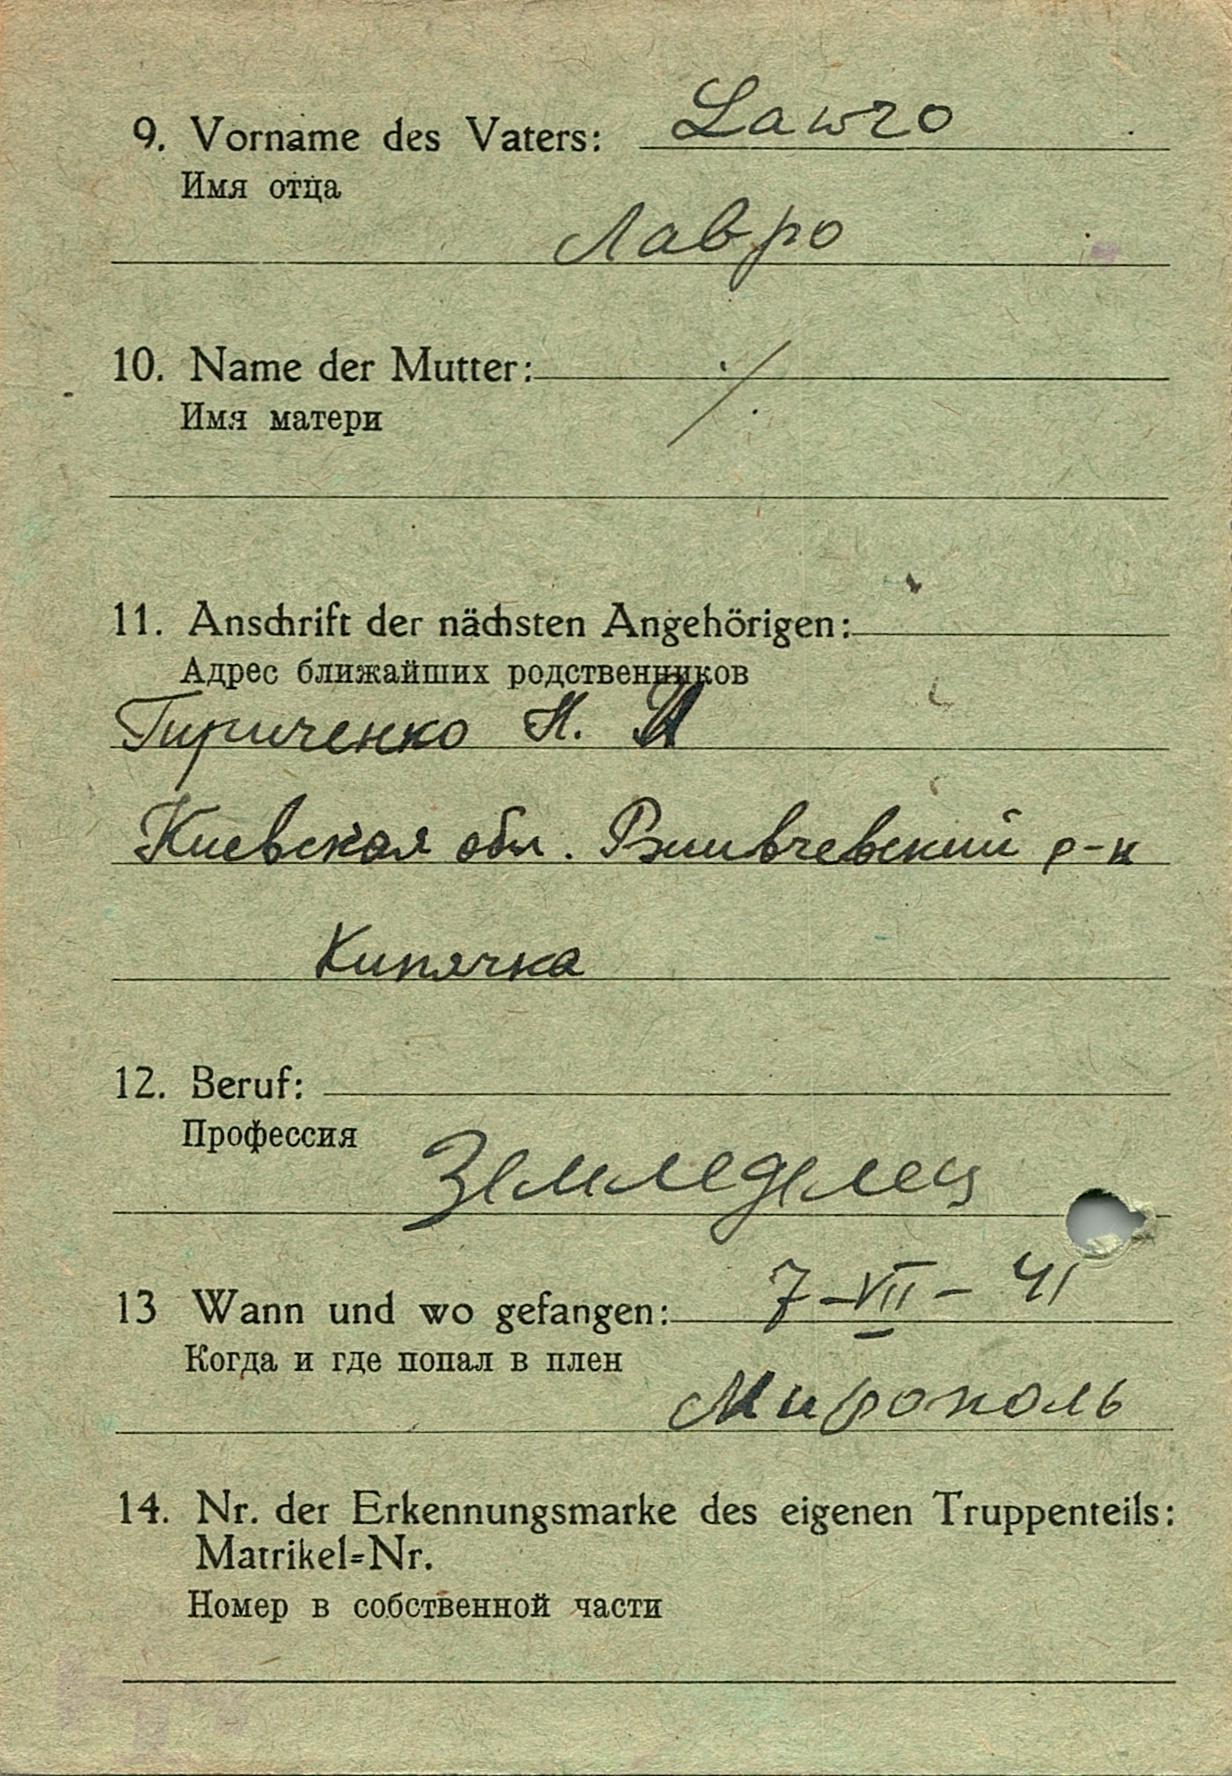 9. Vorname des Vaters: Lawro
Имя отца
Лавро
10. Name der Mutter: ./.
Имя матери
11. Anschrift der nächsten Angehörigen:
Адрес ближайших родственников
Гириченко Н. И
Киевская обл. р-н
Кипячка
12. Beruf:
Профессия
Земледелец
13 Wann und wo gefangen: 7-VII-41
Когда и где попал в плен
Мирополь
14. Nr. der Erkennungsmarke des eigenen Truppenteils:
Matrikel=Nr.
Номер в собственной части